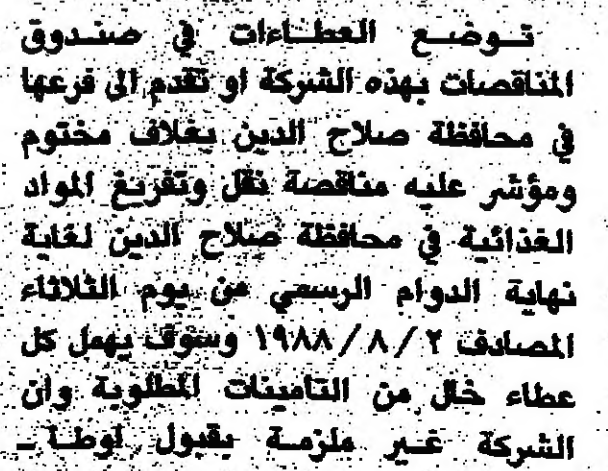 توضع العطاءات في صندوق
المناقصات بهذه الشركة او تقدم الى فرعها
في محافظة صلاح الدين بغلاف مختوم
ومؤشر عليه مناقصة نقل وتفريغ المواد
الغذائية في محافظة صلاح الدين لغاية
نهاية الدوام الرسمي من يوم الثلاثاء
المصادف ٢ / ٨ / ١٩٨٨ وسوف يهمل كل
عطاء خال من التامينات المطلوبة وان
الشركة غير ملزمة بقبول اوطا ــ